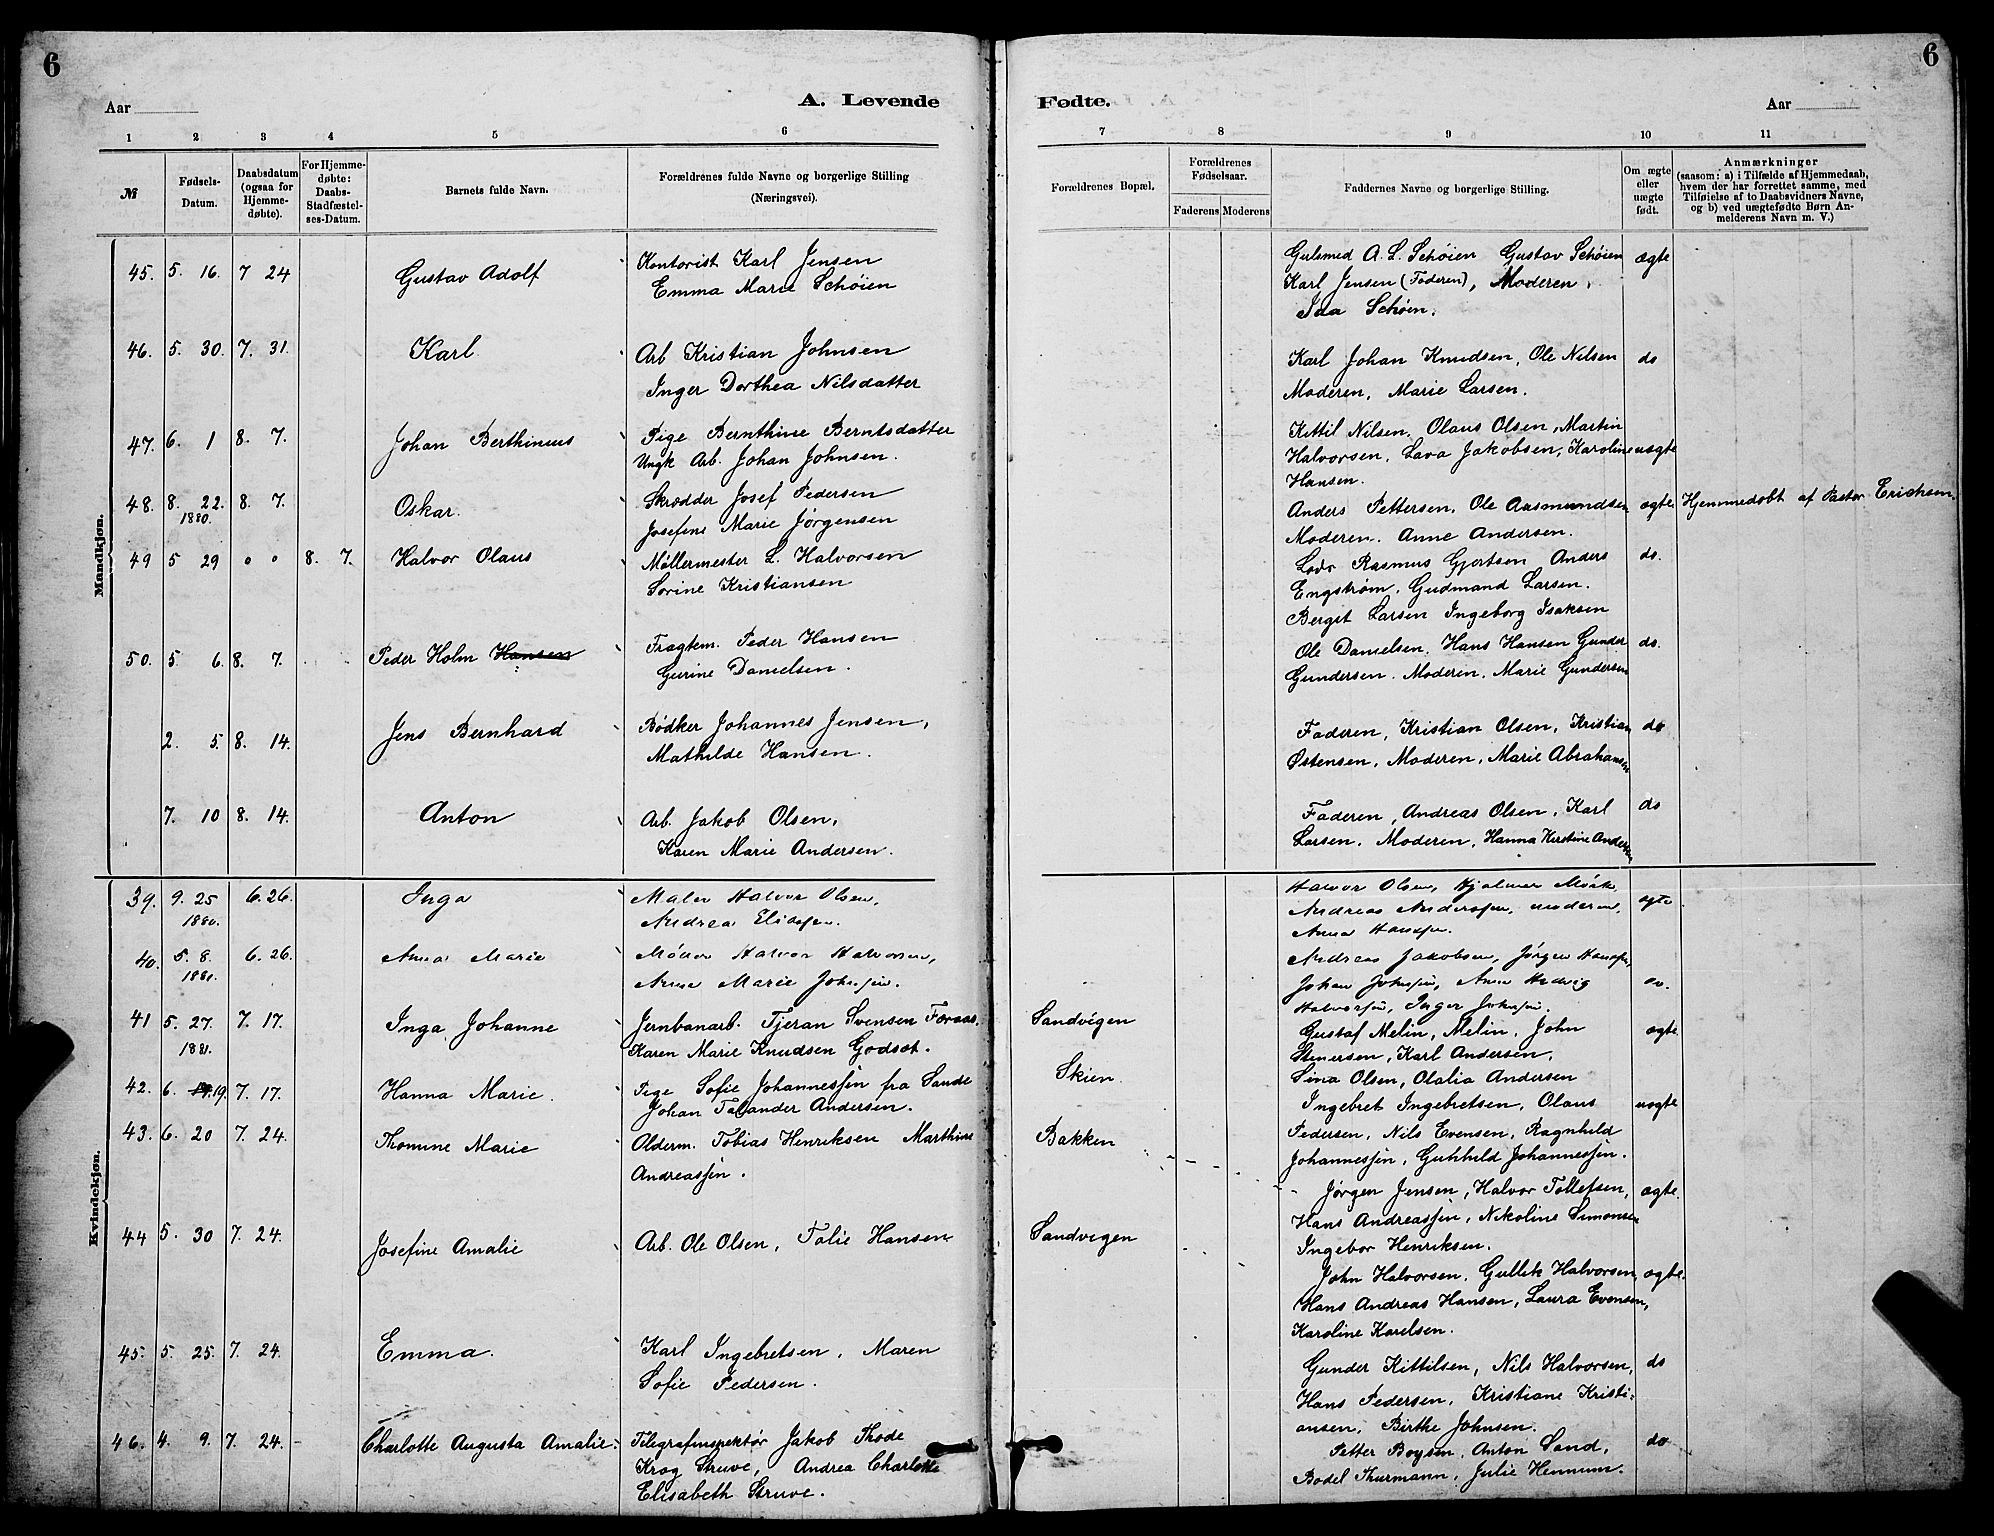 6
6
Aar
A. Levende
Fødte.
Aar
1 2 3 4 5 6
7 8 9 10 11
№
Fødsels-Datum.
Daabsdatum (ogsaa for Hjemme-døbte).
For Hjemme-døbte: Daabs-Stadfæstel-ses-Datum.
Barnets fulde Navn.
Forældrenes fulde Navne og borgerlige Stilling (Næringsvei).
Forældrenes Bopæl.
Forældrenes Fødselsaar.
Faderens Moderens
Faddernes Navne og borgerlige Stilling.
Om ægte eller uægte født.
Anmærkninger
(saasom: a) i Tilfælde af Hjemmedaab,
hvem der har forrettet samme, med
Tilføielse af to Daabsvidners Navne,
og b) ved uægtefødte Børn An-
melderens Navn m. V.)
Mandkjøn.
45. 5. 16. 7 24 Gustav Adolf Kontorist Karl Jensen
Emma Marie Schøien
Gulsmed A. L. Schøien Gustav Schøien ægte
Karl Jensen (Faderen), Moderen,
Ida Schøien.
46. 5. 30. 7. 31. Karl. Arb Kristian Johnsen
Inger Dorthea Nilsdatter
Karl Johan Knudsen, Ole Nilsen do
Moderen, Marie Larsen.
47. 6. 1 8. 7. Johan Berthinius Pige Bernthine Berntsdatter
Ungk Arb. Johan Johnsen.
Kittil Nilsen. Olaus Olsen, Martin
Halvorsen, Lava Jakobsen, Karoline uægte
Hansen.
48. 8. 22. 8. 7. Oskar. Skrædder Josef Pedersen
1880.
Josefine Marie Jørgensen
Anders Pettersen, Ole Aasmundsen ægte Hjemmedøbt af Pastor Erichsen.
Moderen. Anne Andersen.
49 5 29 " " 8. 7. Halvor Olaus Møllermester L. Halvorsen
Sorine Kristiansen
Lods Rasmus Gjertsen Anders do.
Engstrøm, Gudmand Larsen.
Bergit Larsen Ingeborg Isaksen
50. 5. 6. 8. 7. Peder Holm Hansen Fragtem. Peder Hansen
Gurine Danielsen.
Ole Danielsen, Hans Hansen Gunder do.
Gundersen. Moderen, Marie Gundersen
2. 5. 8. 14. Jens Bernhard Bødker Johannes Jensen,
Mathilde Hansen.
Faderen, Kristian Olsen, Kristian do
Østensen, Moderen, Marie Abrahamsen
7. 10 8. 14. Anton Arb. Jakob Olsen,
Karen Marie Andersen.
Faderen, Andreas Olsen, Karl do
Larsen. Moderen, Hanna Kerstine Andersen
Kvindekjøn.
39. 9. 25 6. 26. Inga Maler Halvor Olsen,
1880.
Andrea
Halvor Olsen, Hjalmer Mørk,
Andreas Anderssen, moderen, ægte
Anna Hanssen.
40. 5. 8. 6. 26. Anna Marie Møller Halvor Halvorsen,
1881.
Anne Marie Johnsen.
Andreas Jakobsen, Jørgen Hanssen,
Johan Johnsen, Anne Hedvig
Halvorsen, Inger Johnsen.
41 5. 27. 7. 17. Inga Johanne Jernbanarb. Tjeran Svensen Foraas. Sandvigen
1881.
Karen Marie Knudsen Godset.
Gustaf Melin, Melin, John ægte
Stenersen, Karl Andersen,
Sina Olsen, Olalia Andersen
42. 6. 19. 7. 17. Hanna Marie. Pige Sofie Johannessen fra Sande Skien.
Johan Talander Andersen.
Ingebret Ingebretsen, Olaus uægte
Pedersen, Nils Evensen, Ragnhild
Johannessen, Gunhild Johannessen.
43. 6. 20 7. 24. Thomine Marie Olderm. Tobias Henriksen Marthine Bakken
Andreassen.
Jørgen Jensen, Halvor Tollefsen, ægte.
Hans Andreassen, Nikoline Simonsen
Ingebor Henriksen.
44 5. 30 7. 24. Josefine Amalie Arb. Ole Olsen, Talie Hansen Sandvigen
John Halvorsen, Gullik Halvorsen, ægte.
Hans Andreas Hansen, Laura Evensen,
Karoline Karelsen.
45. 5. 25. 7. 24. Emma. Karl Ingebretsen, Maren
Sofie Pedersen.
Gunder Kittilsen, Nils Halvorsen, do
Hans Pedersen, Kristiane Kristi-
ansen, Birthe Johnsen.
46. 4. 9. 7. 24. Charlotte Augusta Amalie. Telegrafinspektør Jakob Thode
Krog Struve, Andrea Charlotte
Elisabeth Struve.
Petter Boysen, Anton Sand, do
Bodel Thurmann, Julie Hennum.